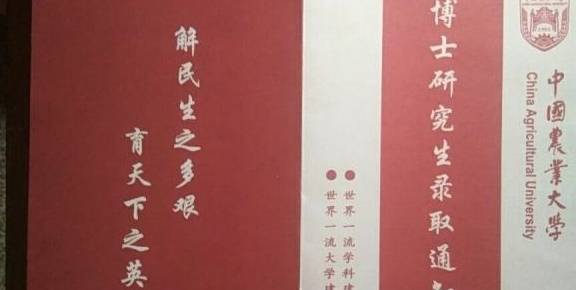 中國農業大學
China Agricultural University
博士研究生录取通知
世界一流学科建
世界一流大学建
解民生之多艰
育天下之英